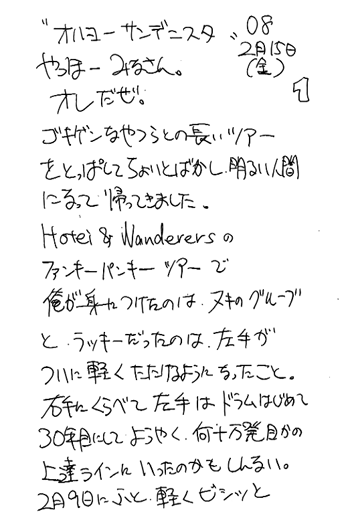 "オルヨーサンデニスタ" 08
2月15日
(金)
やっほー みなさん。
オレだぜ。
1
ゴキゲンなやつらとの長いツアー
をとっぱしてちょいとばかし明るい人間
になって帰ってきました。
Hotei & Wanderersの
ファンキーパンキーツアーで
俺が身につけたのは、ヌキのグルーブ
と、ラッキーだったのは、左手が
ついに軽くたたけるようになったこと。
右手にくらべて左手はドラムはじめて
30年目にしてようやく、何十万発目かの
上達ラインにいったのかもしんない。
2月9日にふと、軽くビシッと